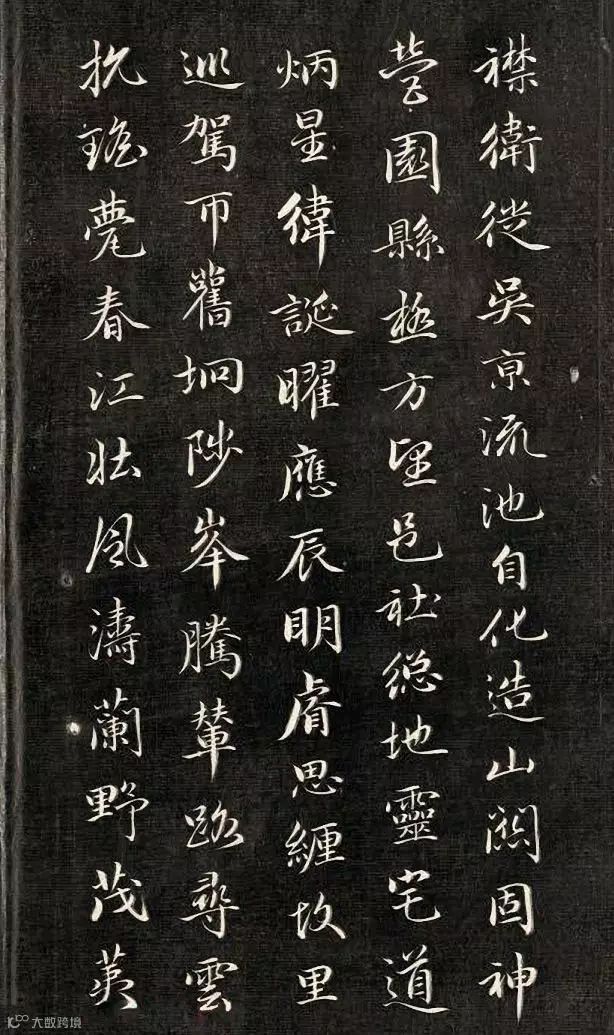 襟衛徙吳亰流池自化造山關固神
營園縣極方望邑社緫地靈宅道
炳星緯誕曜應辰明睿思纏故里
巡駕帀舊坰陟峯騰輦路尋雲
抗瑤甍春江壯風濤蘭野茂荑
大数跨境